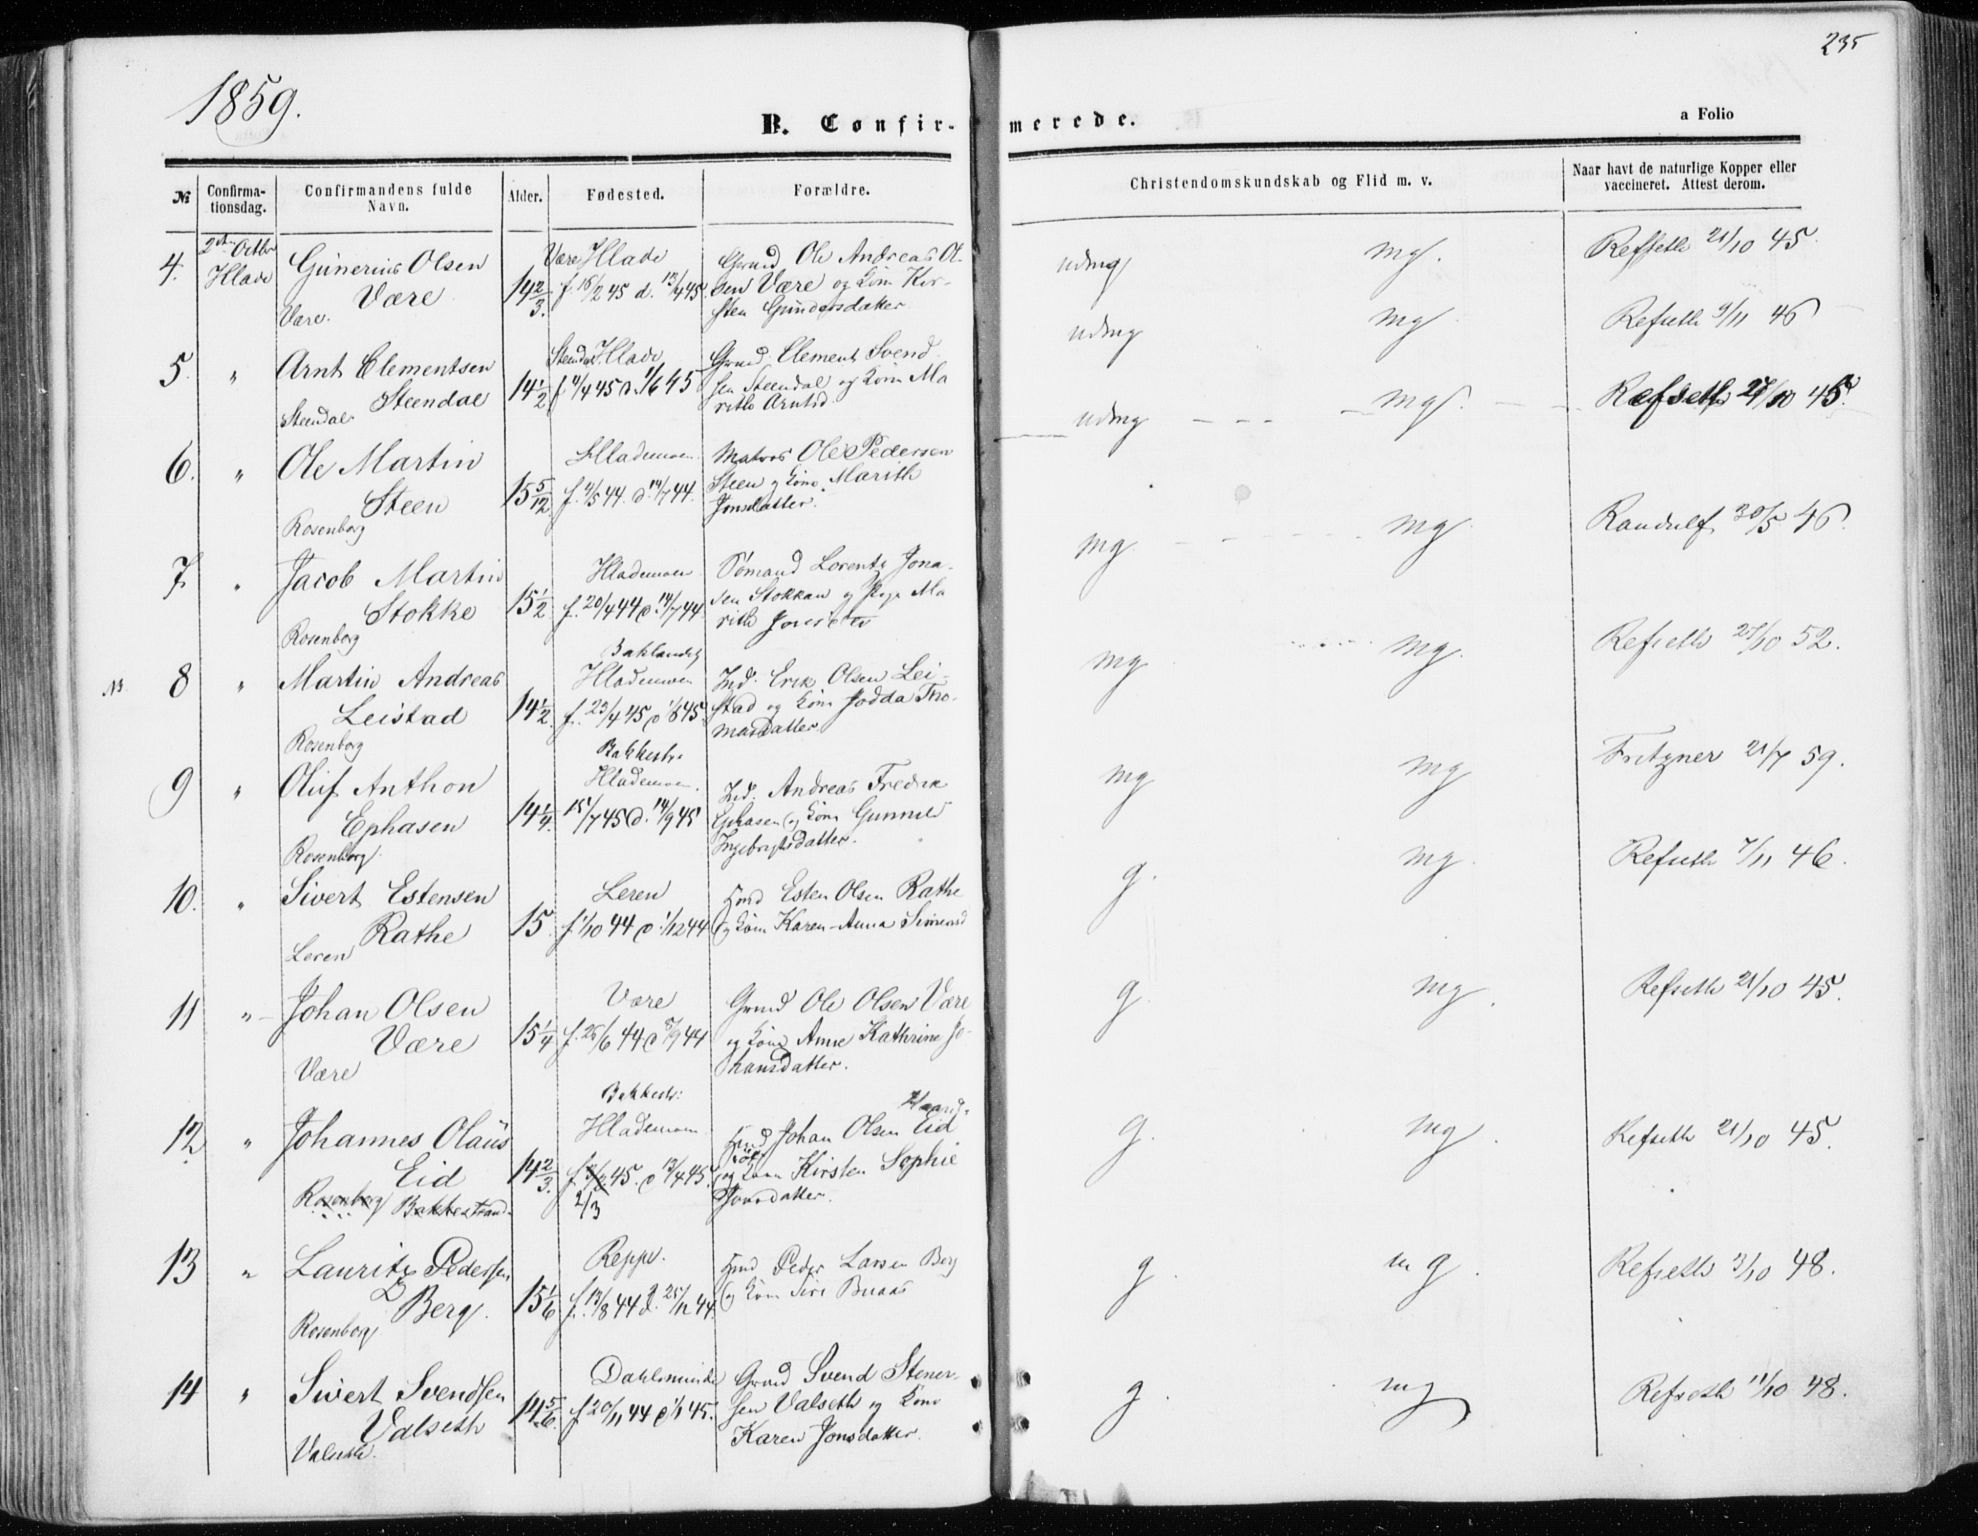 235
1859.
B. Confir-merede.
a Folio
№
Confirma-
tionsdag.
Confirmandens fulde
Navn.
Alder.
Fødested.
Forældre.
Christendomskundskab og Flid m. v.
Naar havt de naturlige Kopper eller
vaccineret. Attest derom.
4.
2den Octbr
Hlade
Gunerius Olsen
Være
Være.
14 2/3.
Være Hlade
f. 16/2 45 d. 13/4 45.
Grmd Ole Andreas Ol-
sen Være og Kone Kir-
sten Gundersdatter
udmg
mg.
Refseth 21/10 45.
5.
"
Arnt Clementsen
Steendal
Steendal
14 1/2
Steendal Hlade
f 11/4 45 d. 1/6 45
Grmd. Clement Svend
sen Steendal og Kone Ma
rith Arntsd.
udmg
mg
Refseth 9/11 46
6.
"
Ole Martin
Steen
Rosenborg
15 5/12.
Hlademoen
f. 4/5 44. d. 14/7 44.
Matros Ole Pedersen
Steen og Kone Marith
Jonsdatter.
udmg
mg.
Refseth 27/10 45.
7.
"
Jacob Martin
Stokke
Rosenborg
15 1/2
Hlademoen
f. 20/4 44 d. 14/7 44
Sømand Lorents Jona-
sen Stokkan og Pige Ma
rith
mg
mg.
Randulf 30/5 46.
NB.
8
"
Martin Andreas
Leistad
Rosenborg
14 1/2.
Baklandet
Hlademoen
f. 23/4 45 d 1/6 45.
Ind. Erik Olsen Lei-
stad og Kone Jodda Tho-
masdatter
mg
mg.
Refseth 27/10 52.
9
"
Oluf Anthon
Ephasen
Rosenborg.
14 1/4.
Bakkestr.
Hlademoen.
15/7 45 d. 14/9 45
Ind. Andreas Fredrik
Ephasen og Kone Gunnild
Ingebrigtsdatter.
mg
mg
Fritzner 21/7 59.
10.
"
Sivert Estensen
Rathe
Leren
15.
Leren
f. 1/10 44 d. 1/12 44
Hmd Esten Olsen Rathe
og Kone Karen-Anna
g.
mg.
Refseth 7/11 46.
11
"
Johan Olsen
Være
Være
15 1/4
Være
f. 26/6 44 d 8/9 44
Grmd Ole Olsen Være
og Kone Anne Kathrine Jo-
hansdatter.
g
mg.
Refseth 21/10 45.
12.
"
Johannes Olaus
Eid
Rosenborg Bakkestrand
14 2/3.
Bakkestr.
Hlademoen
45. d 13/4 45.
2/3
Hmd Johan Olsen Eid
og Kone Kirsten Sophie
Jonsdatter.
g.
mg.
Refseth 21/10 45.
13
"
Lauritz Pedersen
Berg.
Rosenborg
15 1/6
Reppe.
f. 13/8 44 d. 25/12 44.
Hmd Peder Larsen Berg
og Kone Siri Buaas
g.
mg.
Refseth 3/10 48.
14
"
Sivert Svendsen
Valseth
Valseth.
14 5/6.
Dahlsminde
f 20/11 44 d 1/1 45.
Grmd Svend Stener-
sen Valseth og Kone
Karen Jonsdatter.
g.
mg
Refseth 11/10 48.